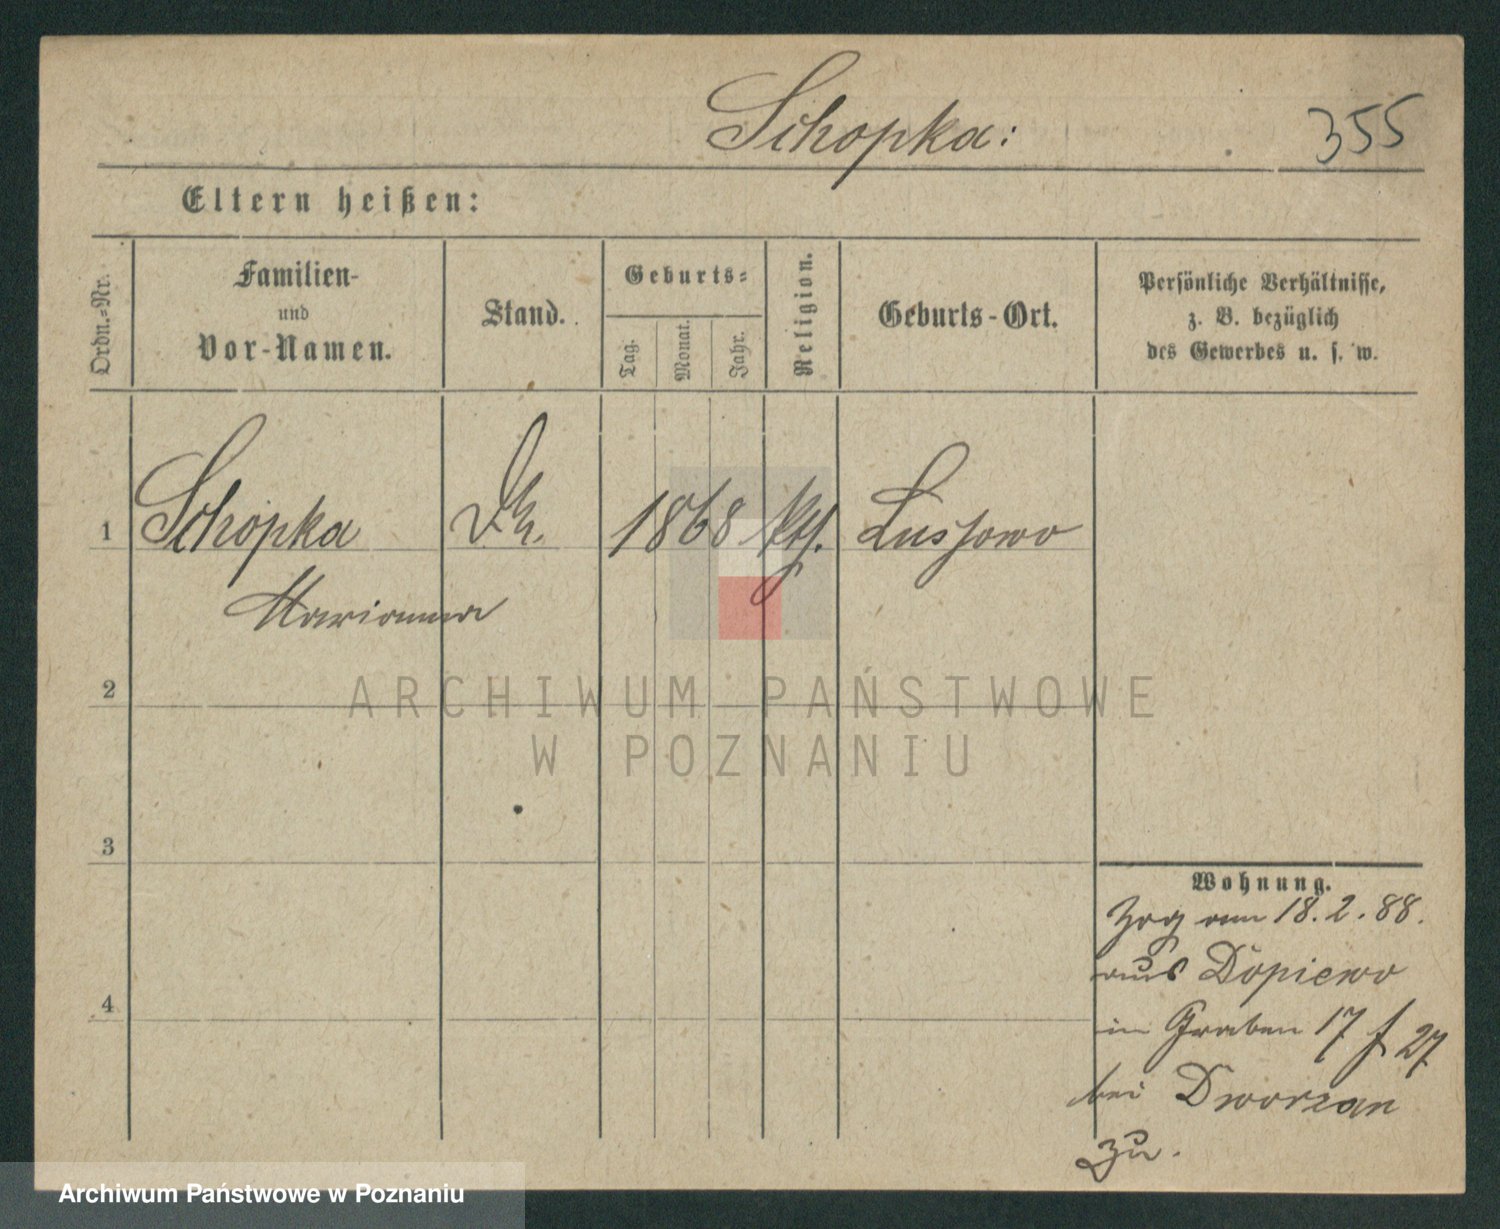 Schopka:
355
Eltern heißen:
Ordn.-Nr.
Familien-
und
Vor-Namen.
Stand.
Geburts-
Tag.
Monat.
Jahr.
Religion.
Geburts-Ort.
Persönliche Verhältnisse,
z. B. bezüglich
des Gewerbes u. s. w.
1
Schopka
1868
kth.
Lussowo
Marianna
2
ARCHIWUM PAŃSTWOWE
W POZNANIU
3
Wohnung.
Zog am 18.2.88.
aus Dopiewo
in Graben 17 f 27
4
bei Dworzan
zu.
Archiwum Państwowe w Poznaniu